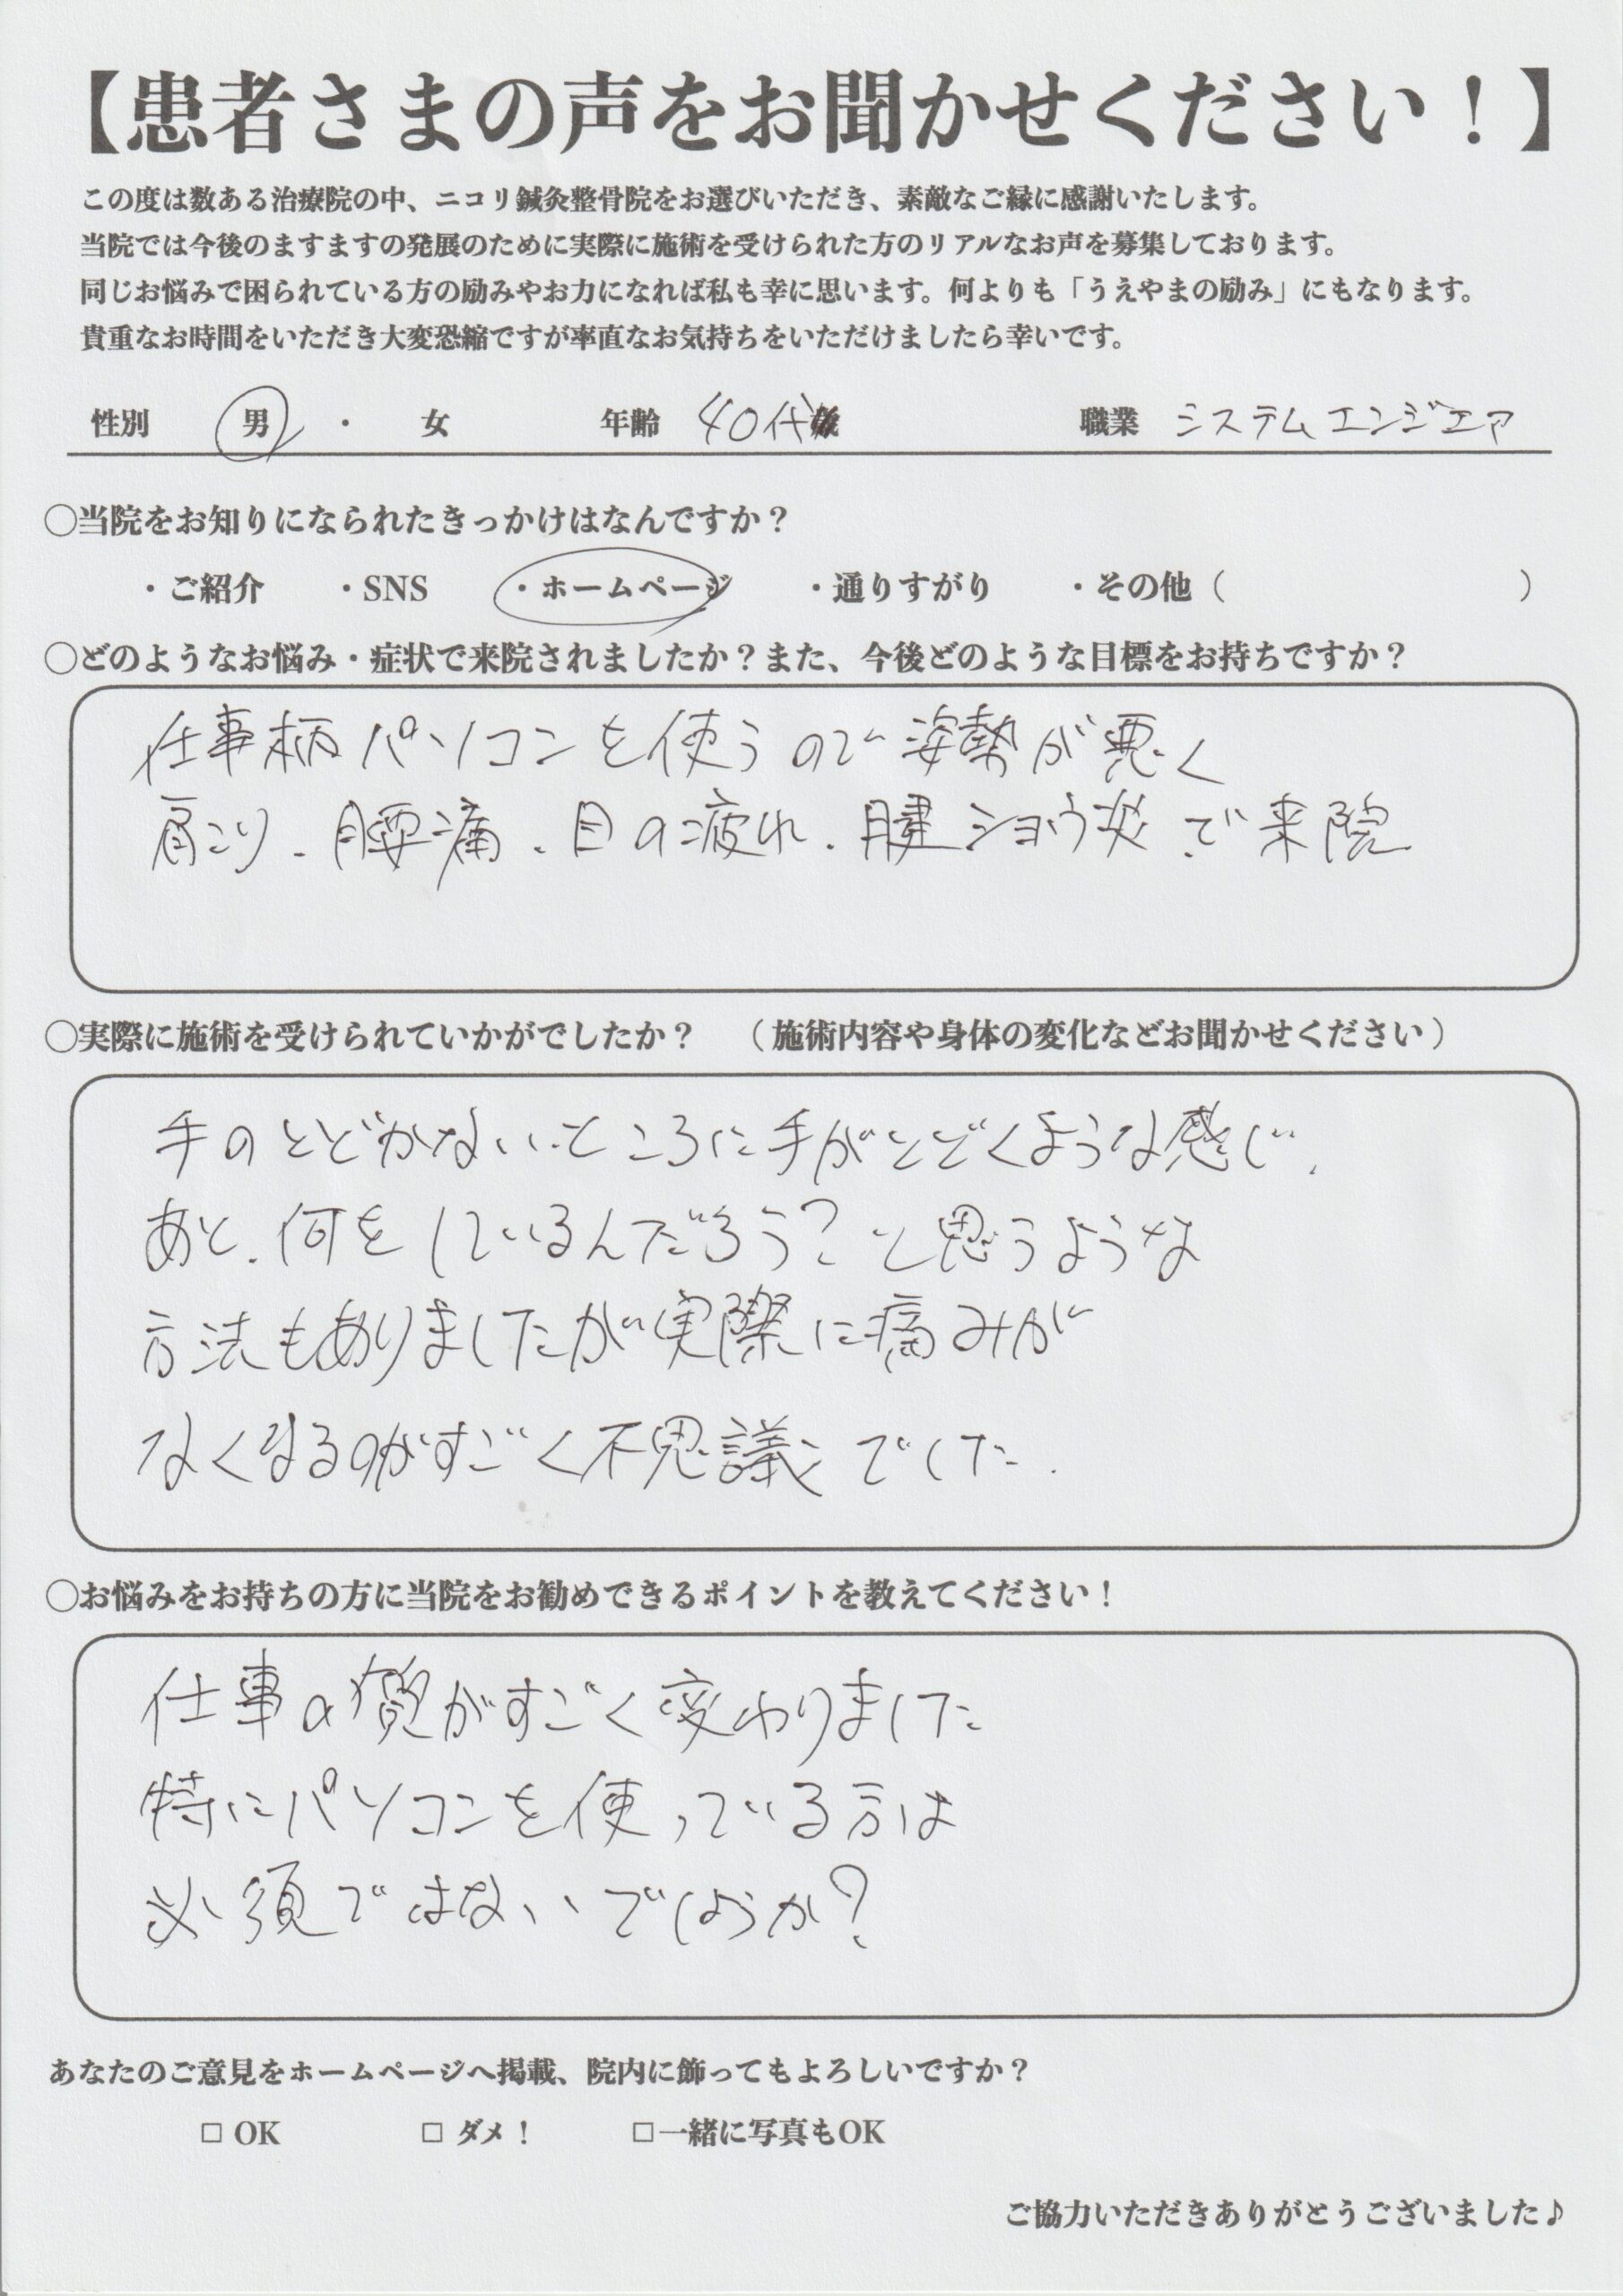 【患者さまの声をお聞かせください！】
この度は数ある治療院の中、ニコリ鍼灸整骨院をお選びいただき、素敵なご縁に感謝いたします。
当院では今後のますますの発展のために実際に施術を受けられた方のリアルなお声を募集しております。
同じお悩みで困られている方の励みやお力になれば私も幸に思います。何よりも「うえやまの励み」にもなります。
貴重なお時間をいただき大変恐縮ですが率直なお気持ちをいただけましたら幸いです。
性別 男 ・ 女 年齢 40代 職業 システムエンジニア
○当院をお知りになられたきっかけはなんですか？
・ご紹介 ・SNS ・ホームページ ・通りすがり ・その他（ ）
○どのようなお悩み・症状で来院されましたか？また、今後どのような目標をお持ちですか？
仕事柄パソコンを使うので姿勢が悪く
肩こり、腰痛、目の疲れ、腱ショウ炎で来院
○実際に施術を受けられていかがでしたか？ （施術内容や身体の変化などお聞かせください）
手のとどかないところに手がとどくような感じ、
あと、何をしているんだろう？と思うような
方法もありましたが実際に痛みが
なくなるのがすごく不思議でした．
○お悩みをお持ちの方に当院をお勧めできるポイントを教えてください！
仕事の がすごく変わりました
特にパソコンを使っている方は
必須ではないでしょうか？
あなたのご意見をホームページへ掲載、院内に飾ってもよろしいですか？
□ OK □ ダメ！ □一緒に写真もOK
ご協力いただきありがとうございました♪